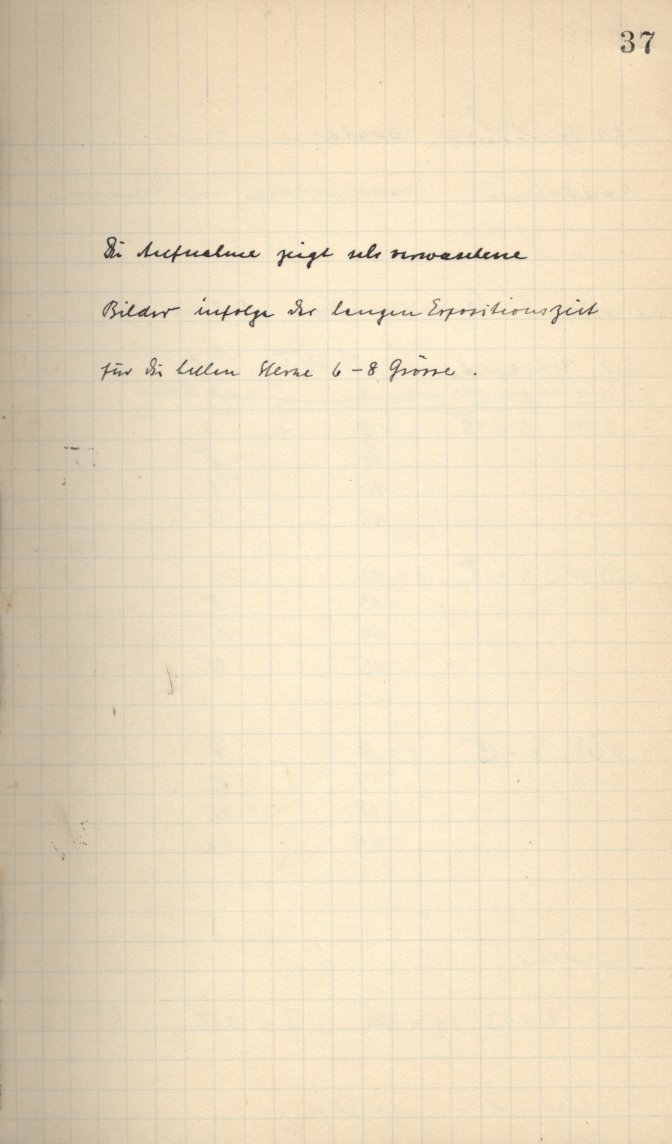 37
Die Aufnahme zeigt sehr verwaschene
Bilder infolge der langen Expositionszeit
für die hellen Sterne 6 – 8 Grösse .